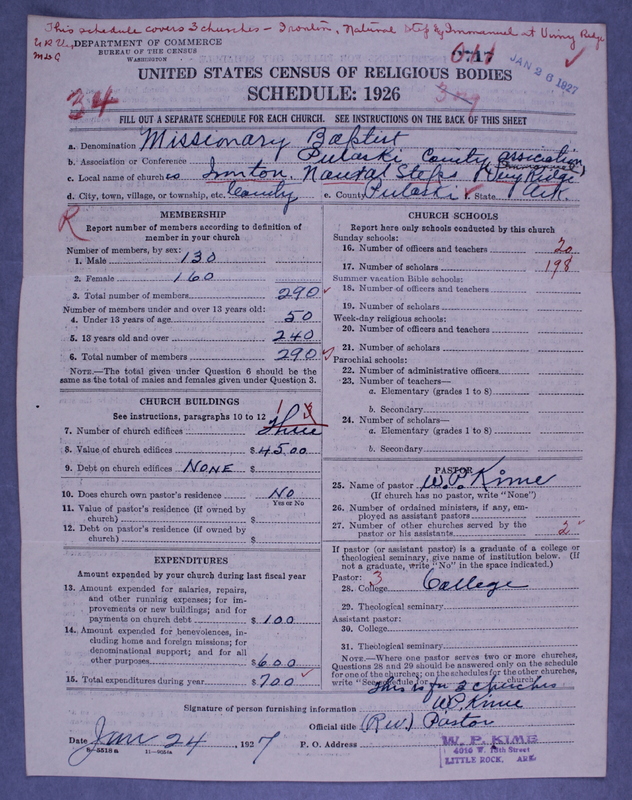 This schedule covers 3 churches - Ironton, Natural Step & Immanuel at Vimy Ridge
U.R.V., DEPARTMENT OF COMMERCE
BUREAU OF THE CENSUS
WASHINGTON
JAN 26 1927
UNITED STATES CENSUS OF RELIGIOUS BODIES
34 SCHEDULE: 1926
FILL OUT A SEPARATE SCHEDULE FOR EACH CHURCH. SEE INSTRUCTIONS ON THE BACK OF THIS SHEET
a. Denomination Missionary Baptist
b. Association or Conference Pulaski County
c. Local name of church
d. City, town, village, or township, etc. County e. County Pulaski f. State Ark.
R
MEMBERSHIP
Report number of members according to definition of member in your church
Number of members, by sex:
1. Male 130
2. Female 160
3. Total number of members 290
Number of members under and over 13 years old:
4. Under 13 years of age 50
5. 13 years old and over 240
6. Total number of members 290
NOTE.—The total given under Question 6 should be
same as the total of males and females given under Question 3.
CHURCH BUILDINGS
See instructions, paragraphs 10 to 12
7. Number of church edifices Three
8. Value of church edifices $4500
9. Debt on church edifices NONE $
10. Does church own pastor's residence NO
Yes or No
11. Value of pastor's residence (if owned by
church) $
12. Debt on pastor's residence (if owned by
church) $
EXPENDITURES
Amount expended by your church during last fiscal year
13. Amount expended for salaries, repairs,
and other running expenses; for im-
provements or new buildings; and for
payments on church debt $100
14. Amount expended for benevolences, in-
cluding home and foreign missions; for
denominational support; and for all
other purposes $600
15. Total expenditures during year $700
CHURCH SCHOOLS
Report here only schools conducted by this church
Sunday schools:
16. Number of officers and teachers 20
17. Number of scholars 198
Summer vacation Bible schools:
18. Number of officers and teachers
19. Number of scholars
Week-day religious schools:
20. Number of officers and teachers
21. Number of scholars
Parochial schools:
22. Number of administrative officers
23. Number of teachers—
a. Elementary (grades 1 to 8)
b. Secondary
24. Number of scholars—
a. Elementary (grades 1 to 8)
b. Secondary
PASTOR
25. Name of pastor W.P. Kime
(If church has no pastor, write "None")
26. Number of ordained ministers, if any, em-
ployed as assistant pastors
27. Number of other churches served by the
pastor or his assistants 2
If pastor (or assistant pastor) is a graduate of a college or
theological seminary, give name of institution below. (If
not a graduate, write "No" in the space indicated.)
Pastor: 3
28. College College
29. Theological seminary
Assistant pastor:
30. College
31. Theological seminary
NOTE.—Where one pastor serves two or more churches,
Questions 28 and 29 should be answered only on the schedule
for one of the churches; on the schedules for the other churches,
write "See schedule for church."
This is for 3 churches
Signature of person furnishing information W.P. Kime
Official title (Rev) Pastor
Date Jan 24, 1927 P. O. Address
W. P. KIME
4010 W. 13th Street
LITTLE ROCK, ARK.
8—5518a 11—9051a